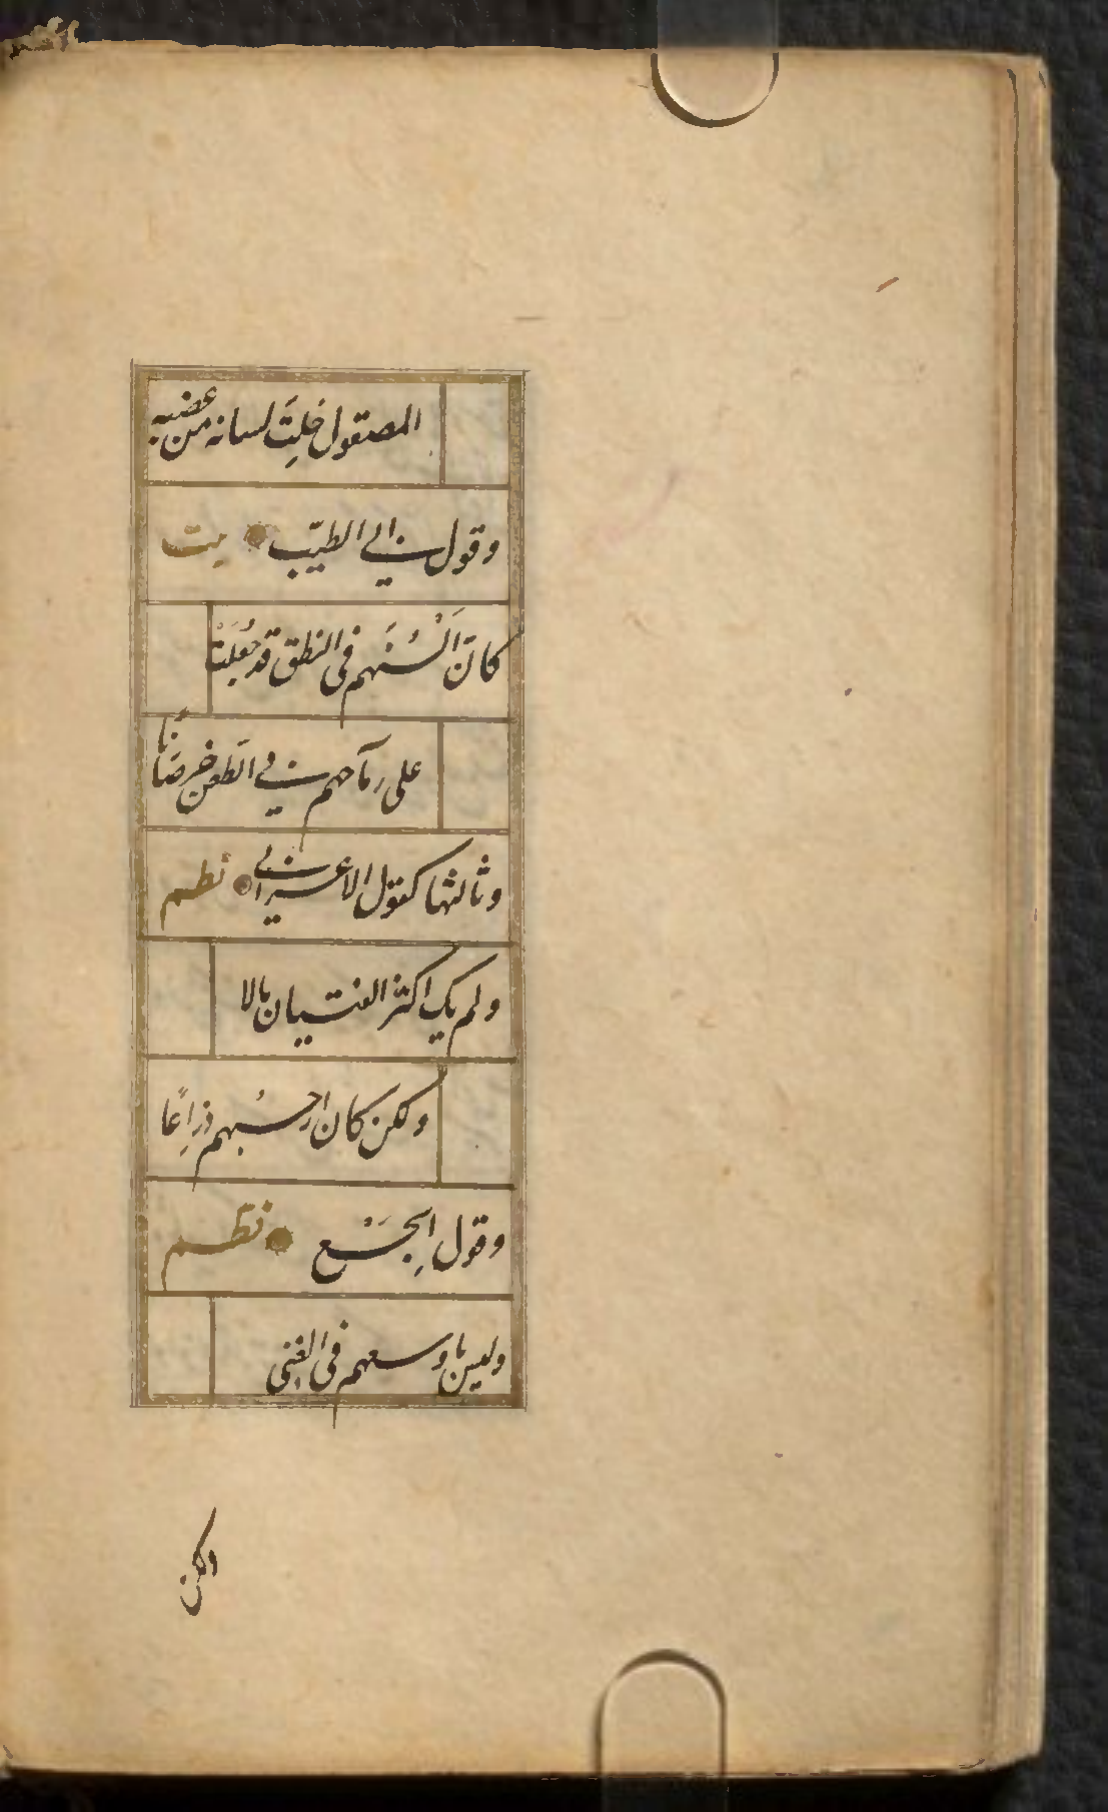 المصقول خلِتَ لسانه من عضبه
وقول ابی الطیّب بیت
كانّ اَلْسُنَهم فی النطق قد جُعِلَتْ
علی رماحهم فی الطّعن خرصَانًا
وثالثها كقول الاعرابی نظم
ولم یک اكثر الفتیان مالا
ولكن كان ارحبُهم ذِراعًا
وقول اشجَعْ نظم
ولیس باوسعهم فی الغِنی
ولكن